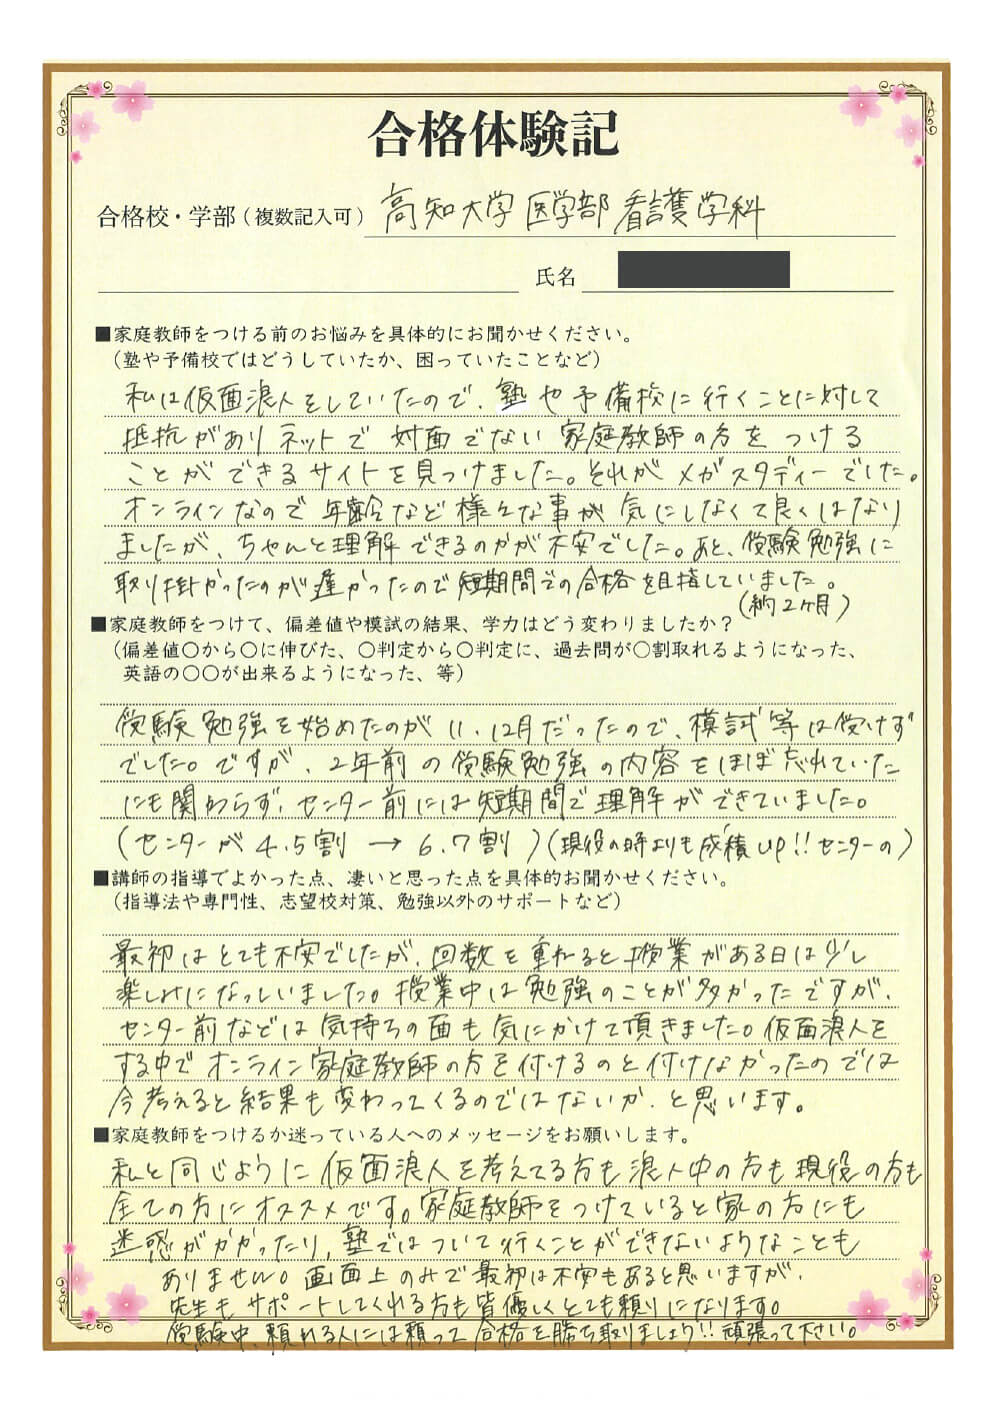 合格体験記
合格校・学部(複数記入可) 高知大学 医学部 看護学科
氏名
■家庭教師をつける前のお悩みを具体的にお聞かせください。
(塾や予備校ではどうしていたか、困っていたことなど)
私は仮面浪人をしていたので、塾や予備校に行くことに対して
抵抗がありネットで対面でない家庭教師の方をつける
ことができるサイトを見つけました。それがメガスタディーでした。
オンラインなので年齢など様々な事が気にしなくて良くはなり
ましたが、ちゃんと理解できるのかが不安でした。あと、受験勉強に
取り掛かったのが遅かったので短期間での合格を目指していました。
(約2ヶ月)
■家庭教師をつけて、偏差値や模試の結果、学力はどう変わりましたか?
(偏差値○から○に伸びた、○判定から○判定に、過去問が○割取れるようになった、
英語の○○が出来るようになった、等)
受験勉強を始めたのが11、12月だったので、模試等は受けず
でした。ですが、2年前の受験勉強の内容をほぼ忘れていた
にも関わらず、センター前には短期間で理解ができていました。
(センターが4.5割 → 6.7割)(現役の時よりも成績up!!センターの)
■講師の指導でよかった点、凄いと思った点を具体的お聞かせください。
(指導法や専門性、志望校対策、勉強以外のサポートなど)
最初はとても不安でしたが、回数を重ねると授業がある日は少し
楽しみになっしいました。授業中は勉強のことが多かったですが、
センター前などは気持ちの面も気にかけて頂きました。仮面浪人を
する中でオンライン家庭教師の方を付けるのと付けなかったのでは
今考えると結果も変わってくるのではないか、と思います。
■家庭教師をつけるか迷っている人へのメッセージをお願いします。
私と同じように仮面浪人を考えてる方も浪人中の方も現役の方も
全ての方にオススメです。家庭教師をつけていると家の方にも
迷惑がかかったり、塾ではついて行くことができないようなことも
ありません。画面上のみで最初は不安もあると思いますが、
先生もサポートしてくれる方も皆優しくとても頼りになります。
受験中、頼れる人には頼って合格を勝ち取りましょう!!頑張って下さい。